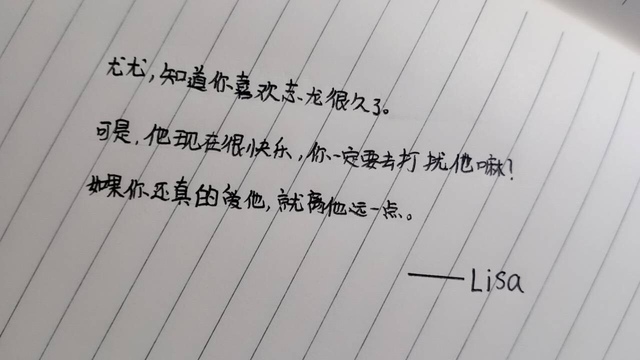 尤尤，知道你喜欢志龙很久了。
可是，他现在很快乐，你一定要去打扰他嘛？
如果你还真的爱他，就离他远一点。
——Lisa